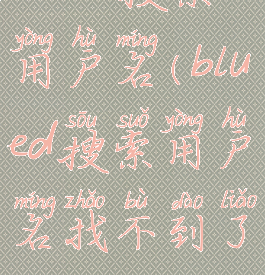 yòng hù míng
用户名(blu
sōu suǒ yòng hù
ed搜索用户
míng zhǎo bù dào liǎo
名找不到了